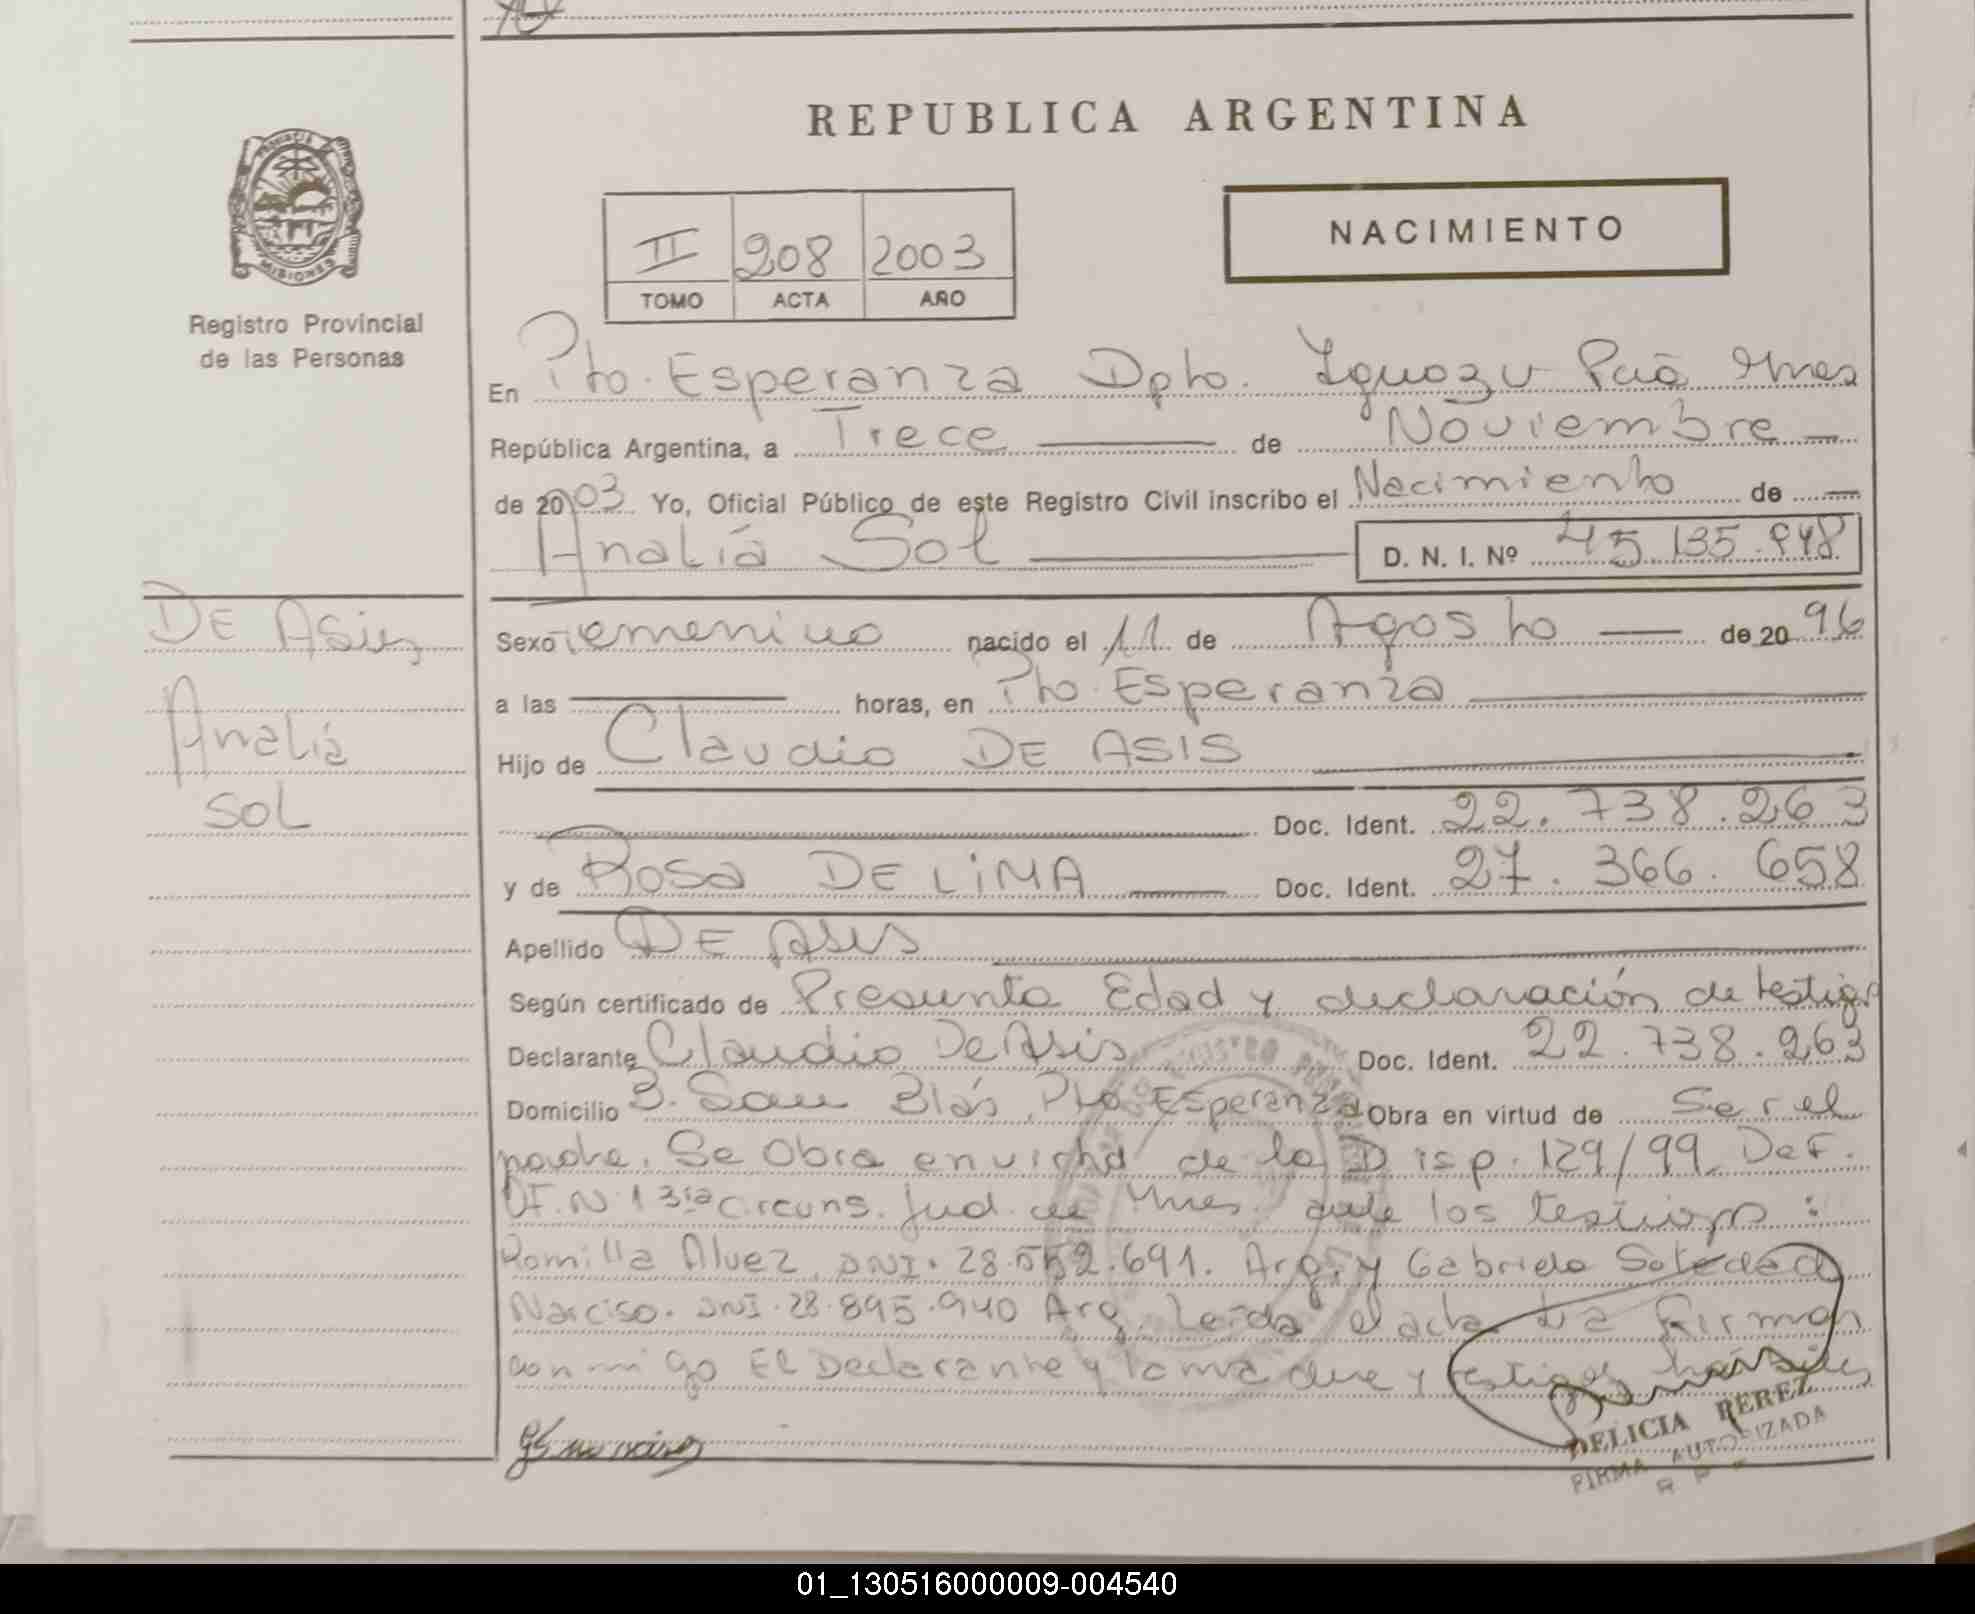 REPUBLICA ARGENTINA
PROVINCIA
MISIONES
Registro Provincial
de las Personas
NACIMIENTO
II 208 2003
TOMO ACTA AÑO
En Pto. Esperanza Dpto. Iguazu Pcia Mnes
República Argentina, a Trece de Noviembre
de 2003 Yo, Oficial Público de este Registro Civil inscribo el Nacimiento de
Analía Sol D. N. I. Nº 45.135.948
DE ASis
Analía
SOL
Sexo Femenino nacido el 11 de Agosto de 20 96
a las horas, en Pto. Esperanza
Hijo de Claudio DE ASIS
Doc. Ident. 22.738.263
y de Rosa DE LiMA Doc. Ident. 27.366.658
Apellido DE ASis
Según certificado de Presunta Edad y declaración de testigos
Declarante Claudio De Asis Doc. Ident. 22.738.263
Domicilio B. San Blás, Pto Esperanza Obra en virtud de Ser el
padre. Se Obra en virtud de la Disp. 129/99 Def.
Of. N 1 3ria Circuns. Jud. de Mnes. ante los testigos:
Romilla Alvez DNI. 28.552.691. Arg. y Gabriela Soledad
Narciso. DNI. 28.895.940 Arg. Leída el acta La Firman
conmigo El Declarante y la madre y testigos
DELICIA PEREZ
FIRMA AUTORIZADA
R P
01_130516000009-004540